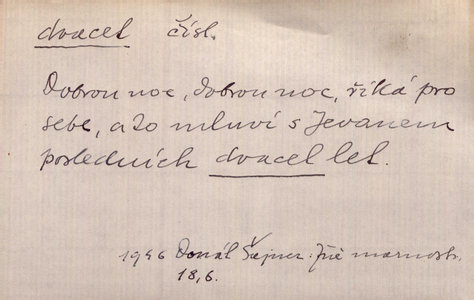 dvacet čísl.
Dobrou noc, dobrou noc, říká pro
sebe, a to mluví s Jevanem
posledních dvacet let.
1946 Donát Šajner: Jiné marnosti
18,6.